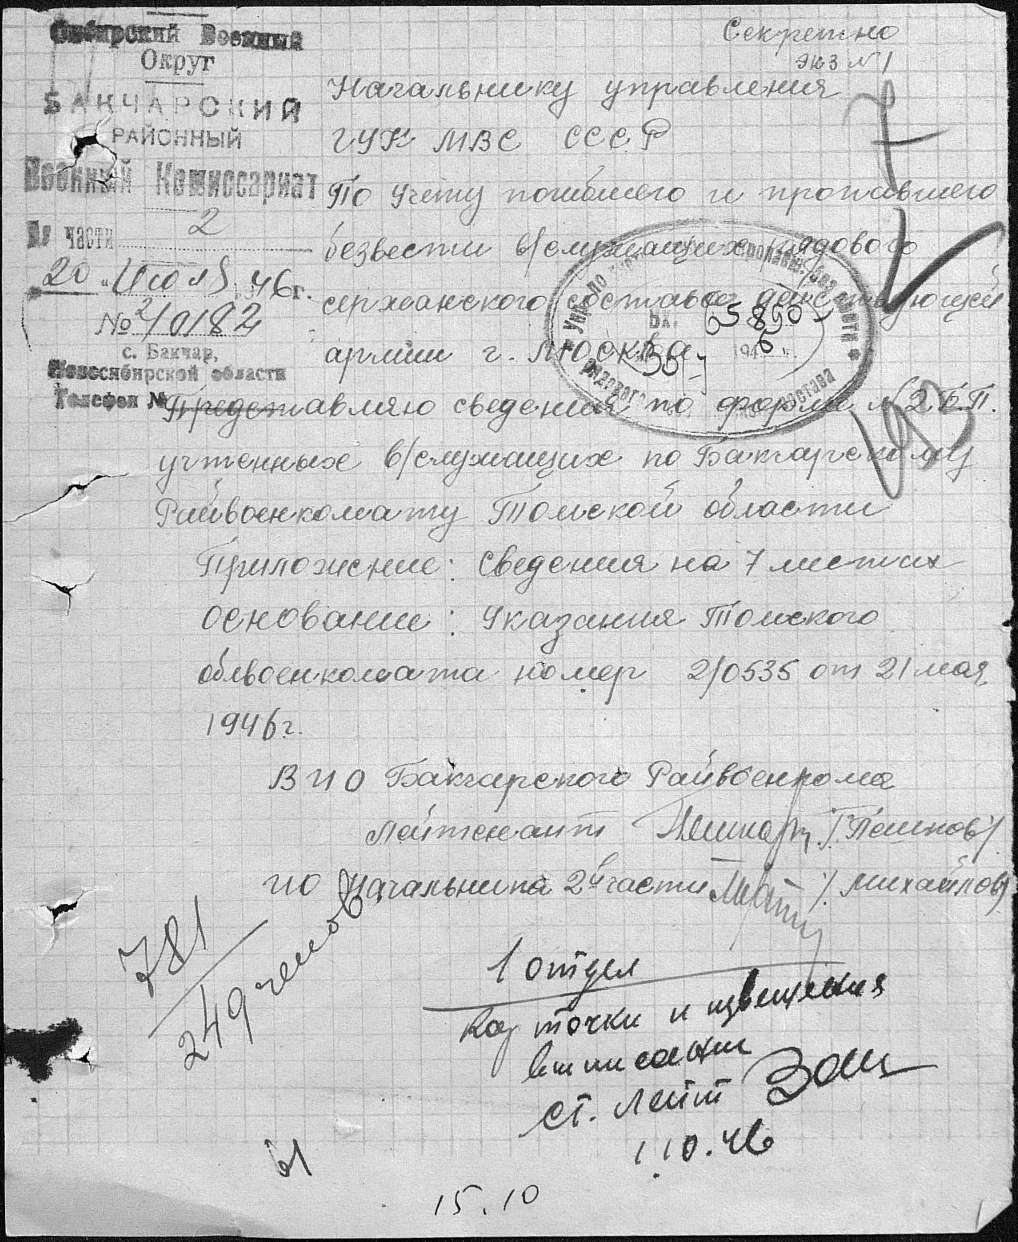 Сибирский Военный
Округ
БАКЧАРСКИЙ
РАЙОННЫЙ
Военный Комиссариат
части 2
20 Июля 1946г.
№ 2/0182
с. Бакчар,
Новосибирской области
Телефон №
Секретно
экз №1
Начальнику управления
ГУК МВС СССР
По учету погибшего и пропавшего
безвести в/служащих рядового
сержанского состава действующей
армии г. Москва
Упр. по
пропавш. без вести
рядового
состава
Вх.
65850
194 6 г.
Представляю сведения по форме №2 БП.
учтенных в/служащих по Бакчарскому
Райвоенкомату Томской области
Приложение: сведения на 7 листах
основание: Указания Томского
облвоенкомата номер 2/0535 от 21 мая
1946г.
ВИО Бакчарского Райвоенкома
Лейтенант /Пешков/
ИО Начальника 2й части /Михайлов/
781
249 членов
1 отдел
Карточки и извещения
выписаны
ст. лейт
1.10.46
15.10